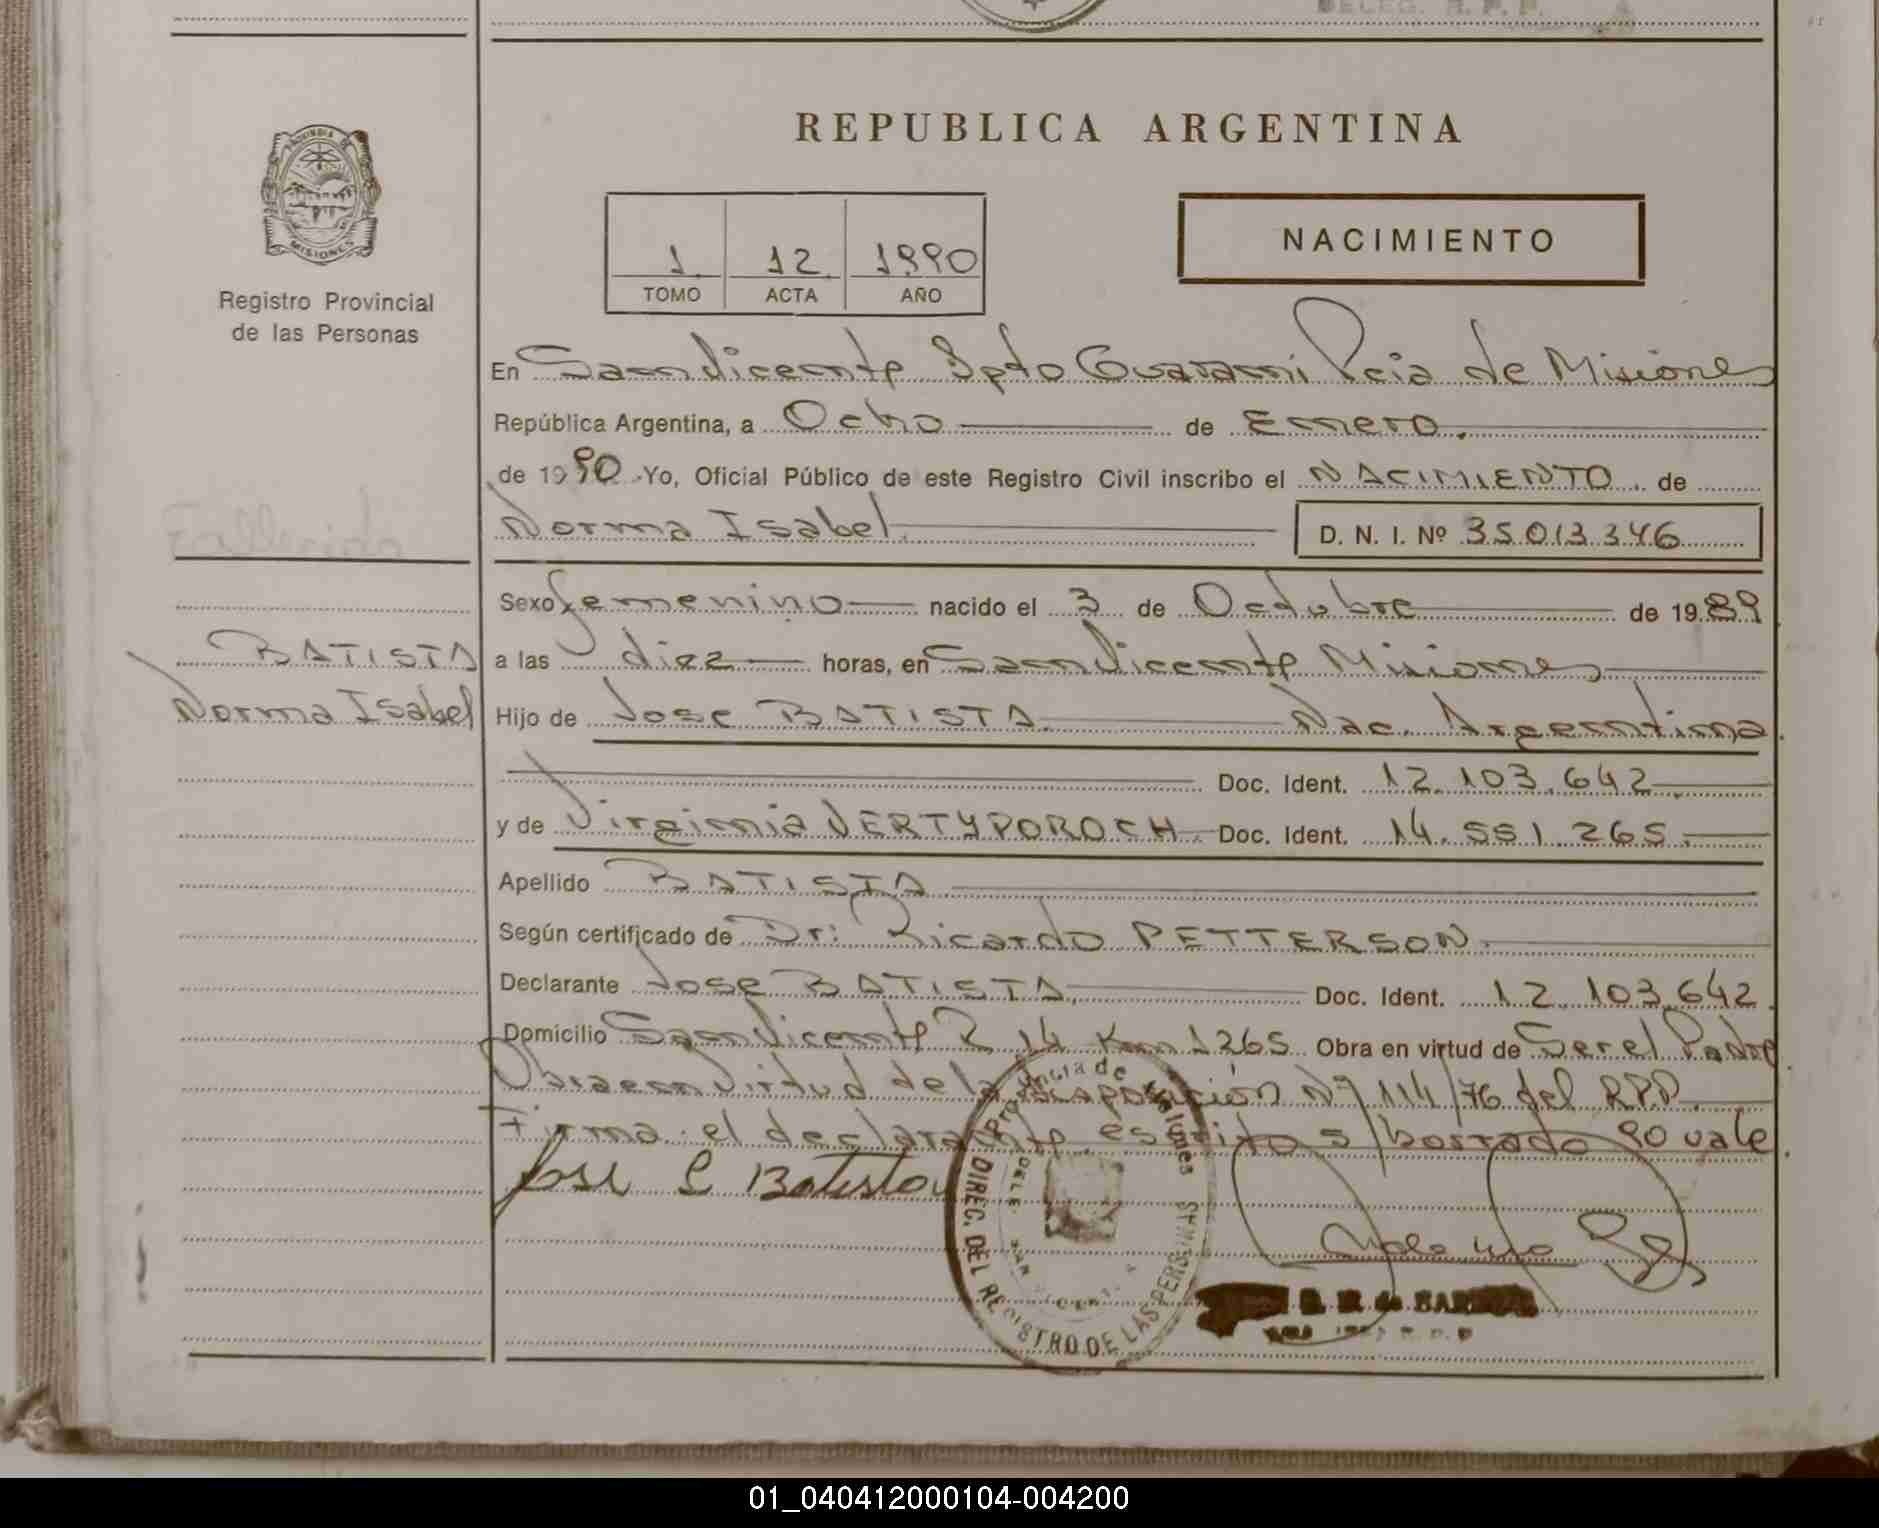 REPUBLICA ARGENTINA
MISIONES
Registro Provincial
de las Personas
1 12 1990
TOMO ACTA AÑO
NACIMIENTO
En San Vicente Dpto Guarani Pcia de Misiones
República Argentina, a Ocho de Enero.
de 1990 Yo, Oficial Público de este Registro Civil inscribo el NACIMIENTO de
Norma Isabel D. N. I. Nº 35013346
Sexo femenino nacido el 3 de Octubre de 1989
BATISTA
Norma Isabel
a las diez horas, en San Vicente Misiones
Hijo de Jose BATISTA Nac. Argentina
Doc. Ident. 12.103.642
y de Virginia VERTYPOROCH Doc. Ident. 14.551.265.
Apellido BATISTA
Según certificado de Dr: Ricardo PETTERSON.
Declarante Jose BATISTA Doc. Ident. 12.103.642.
Domicilio San Vicente R 14 Km 1265 Obra en virtud de Ser el Padre
Obra en virtud de la Nº 114/76 del RPP.
Firma el declarante escrito s/borrado 90 vale.
Jose Batista
Provincia de Misiones
DIREC. DEL REGISTRO DE LAS PERSONAS
01_040412000104-004200